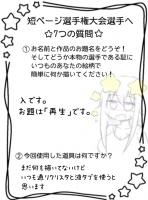 短ページ選手権大会選手へ
☆7つの質問☆
① お名前と作品のお題名をどうぞ！
そしてどうか本物の選手である証に
いつものあなたの絵柄で
簡単に何か描いてください！
入です。
お題は「再生」です。
② 今回使用した道具は何ですか？
まだ何も描いてないけど
いつも通りクリスタと液タブを使うと
思います